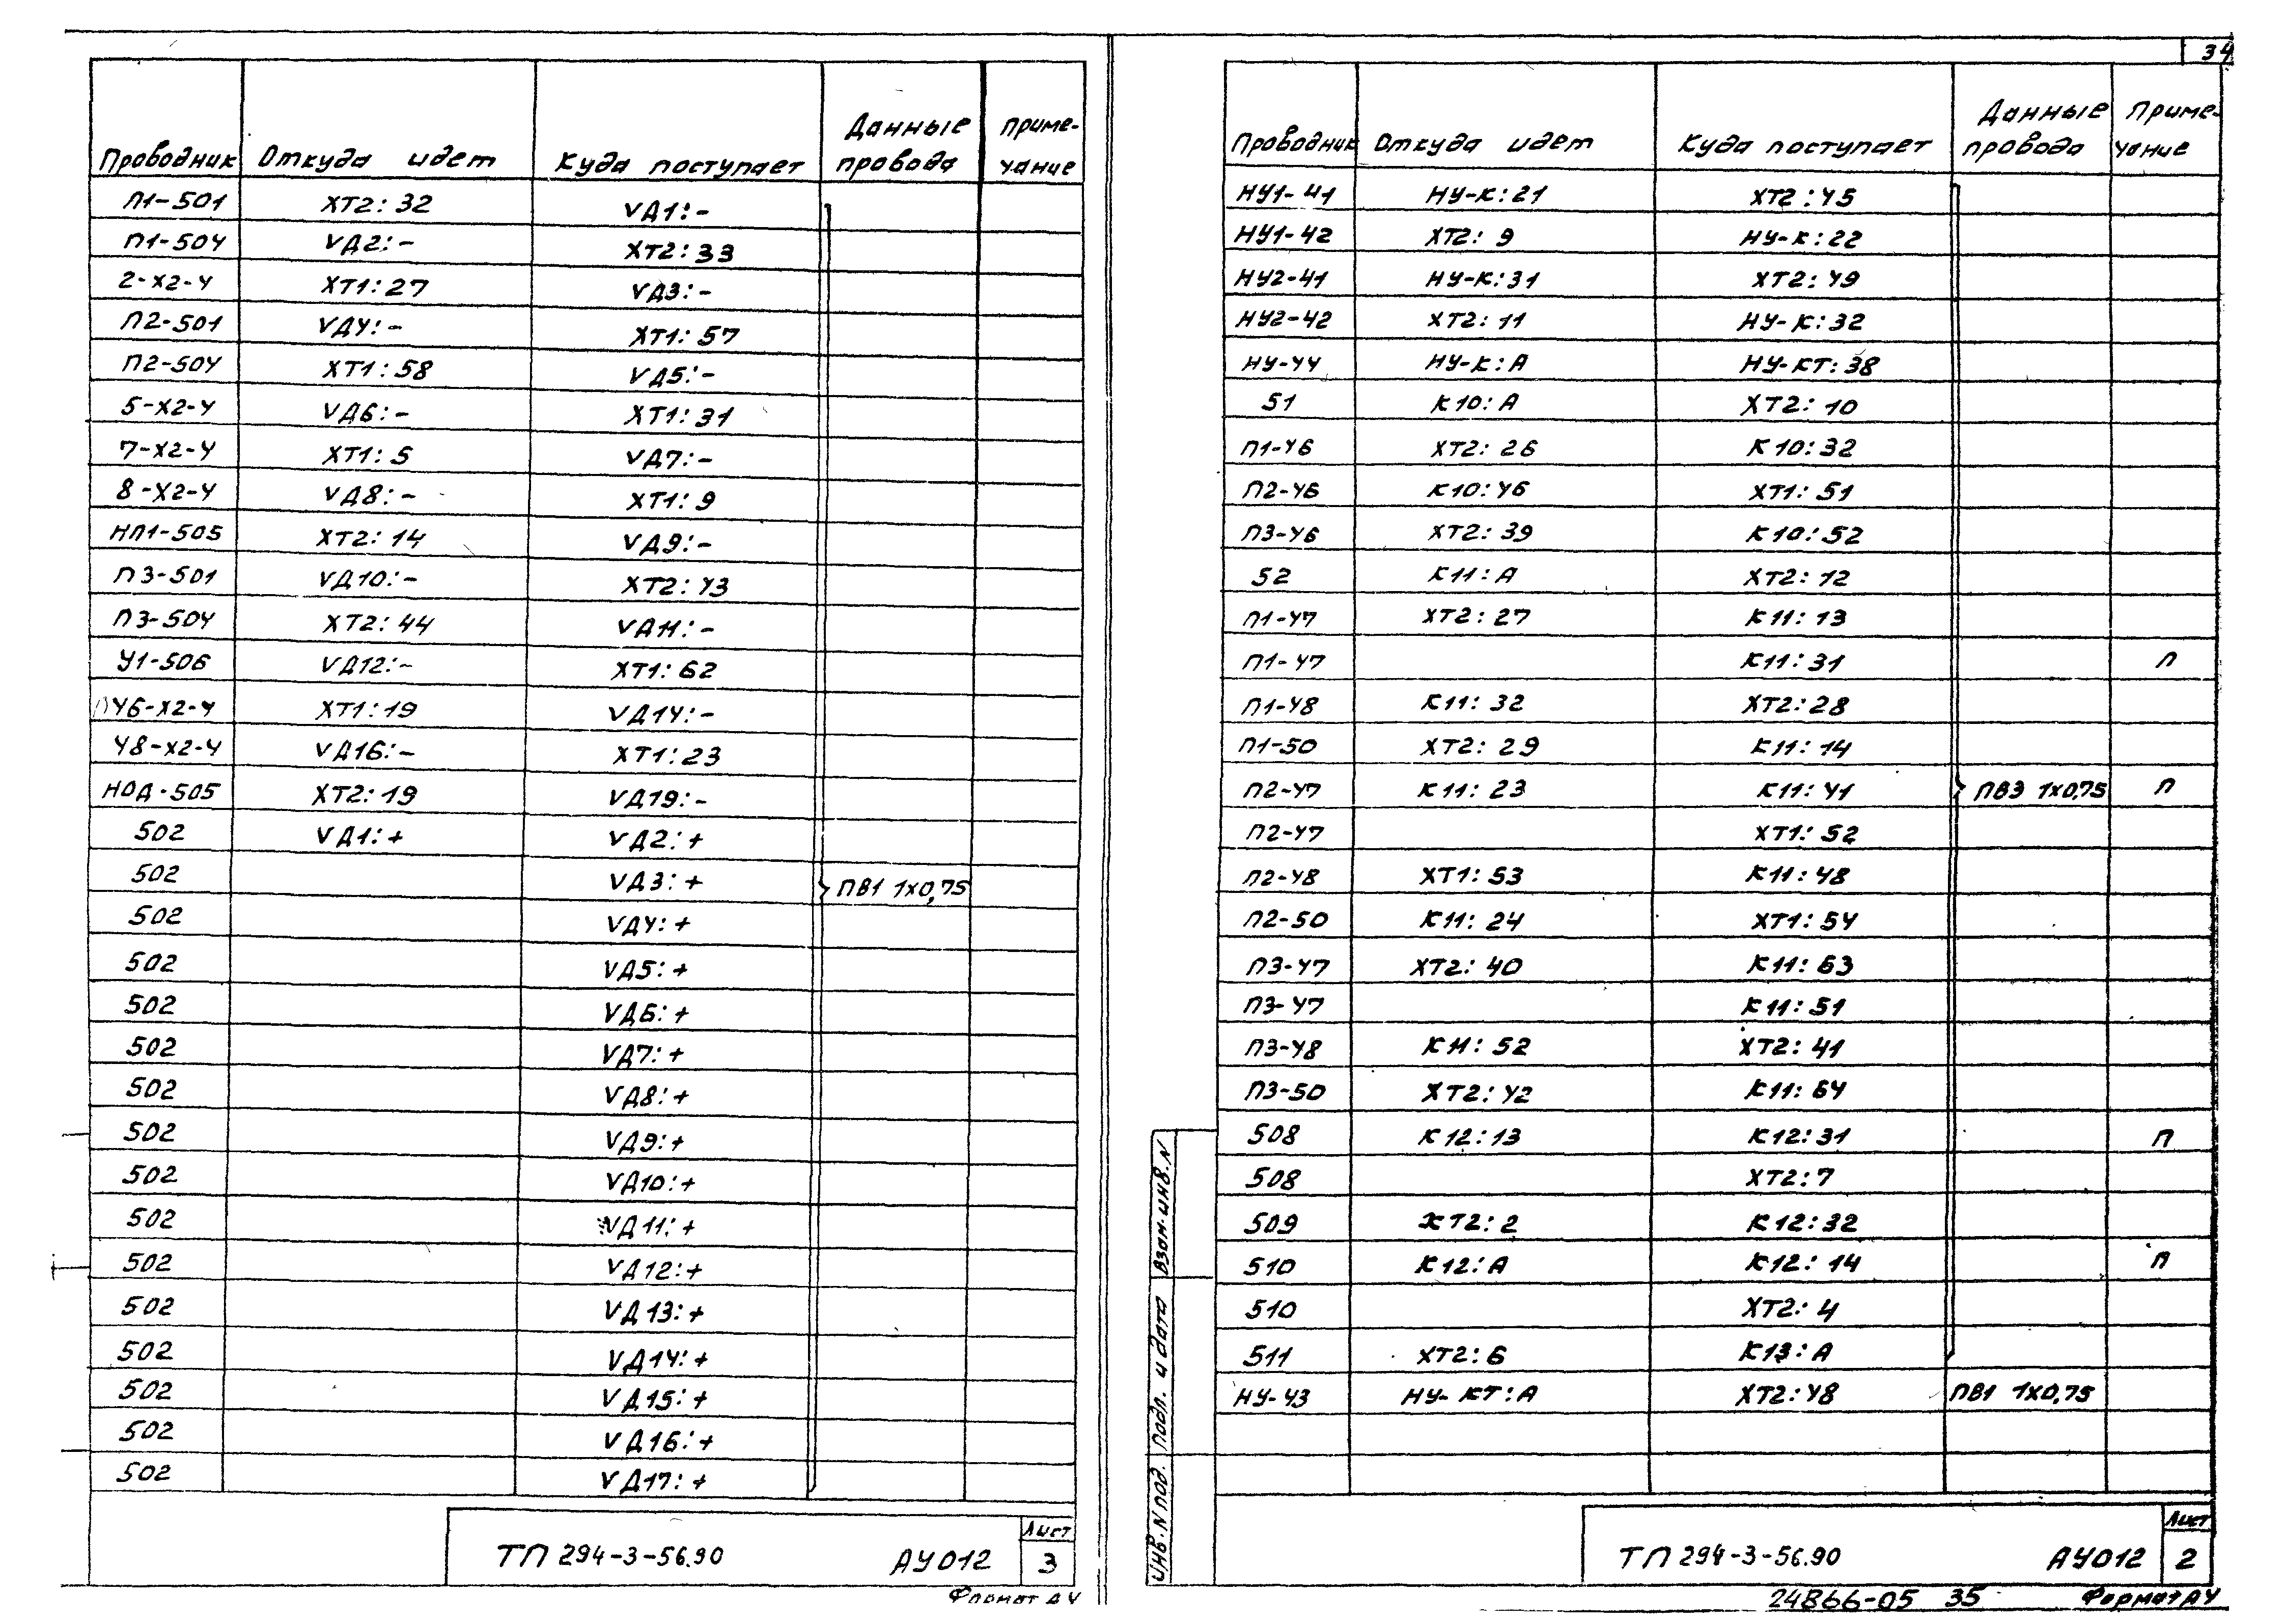 34
Проводник Откуда идет Куда поступает Данные провода Приме-чание
П1-501 ХТ2:32 VД1:-
П1-504 VД2:- ХТ2:33
2-Х2-4 ХТ1:27 VД3:-
П2-501 VД4:- ХТ1:57
П2-504 ХТ1:58 VД5:-
5-Х2-4 VД6:- ХТ1:31
7-Х2-4 ХТ1:5 VД7:-
8-Х2-4 VД8:- ХТ1:9
НП1-505 ХТ2:14 VД9:-
П3-501 VД10:- ХТ2:43
П3-504 ХТ2:44 VД11:-
У1-506 VД12:- ХТ1:62
У6-Х2-4 ХТ1:19 VД14:-
У8-Х2-4 VД16:- ХТ1:23
НОД-505 ХТ2:19 VД19:-
502 VД1:+ VД2:+
502 VД3:+ ПВ1 1х0,75
502 VД4:+
502 VД5:+
502 VД6:+
502 VД7:+
502 VД8:+
502 VД9:+
502 VД10:+
502 VД11:+
502 VД12:+
502 VД13:+
502 VД14:+
502 VД15:+
502 VД16:+
502 VД17:+
ТП 294-3-56.90 АУ012 Лист 3
Формат А4
Проводник Откуда идет Куда поступает Данные провода Приме-чание
НУ1-41 НУ-К:21 ХТ2:45
НУ1-42 ХТ2:9 НУ-К:22
НУ2-41 НУ-К:31 ХТ2:49
НУ2-42 ХТ2:11 НУ-К:32
НУ-44 НУ-К:А НУ-КТ:38
51 К10:А ХТ2:10
П1-46 ХТ2:26 К10:32
П2-46 К10:46 ХТ1:51
П3-46 ХТ2:39 К10:52
52 К11:А ХТ2:12
П1-47 ХТ2:27 К11:13
П1-47 К11:31 П
П1-48 К11:32 ХТ2:28
П1-50 ХТ2:29 К11:14
П2-47 К11:23 К11:41 ПВ3 1х0,75 П
П2-47 ХТ1:52
П2-48 ХТ1:53 К11:48
П2-50 К11:24 ХТ1:54
П3-47 ХТ2:40 К11:63
П3-47 К11:51
П3-48 К11:52 ХТ2:41
П3-50 ХТ2:42 К11:64
508 К12:13 К12:31 П
508 ХТ2:7
509 ХТ2:2 К12:32
510 К12:А К12:14 П
510 ХТ2:4
511 ХТ2:6 К13:А
НУ-43 НУ-КТ:А ХТ2:48 ПВ1 1х0,75
Инв. N под. Подп. и дата Взам. инв. N
ТП 294-3-56.90 АУ012 Лист 2
24866-05 35 Формат А4